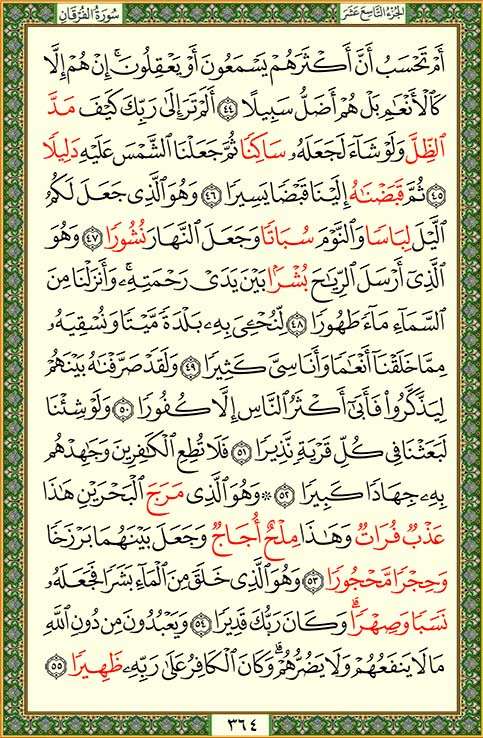 سُورَةُ الفُرْقَانِ
الجُزْءُ التَّاسِعَ عَشَرَ
أَمْ تَحْسَبُ أَنَّ أَكْثَرَهُمْ يَسْمَعُونَ أَوْ يَعْقِلُونَ ۚ إِنْ هُمْ إِلَّا
كَالْأَنْعَٰمِ بَلْ هُمْ أَضَلُّ سَبِيلًا ٤٤ أَلَمْ تَرَ إِلَىٰ رَبِّكَ كَيْفَ مَدَّ
ٱلظِّلَّ وَلَوْ شَآءَ لَجَعَلَهُۥ سَاكِنًا ثُمَّ جَعَلْنَا ٱلشَّمْسَ عَلَيْهِ دَلِيلًا
٤٥ ثُمَّ قَبَضْنَٰهُ إِلَيْنَا قَبْضًا يَسِيرًا ٤٦ وَهُوَ ٱلَّذِى جَعَلَ لَكُمُ
ٱلَّيْلَ لِبَاسًا وَٱلنَّوْمَ سُبَاتًا وَجَعَلَ ٱلنَّهَارَ نُشُورًا ٤٧ وَهُوَ
ٱلَّذِىٓ أَرْسَلَ ٱلرِّيَٰحَ بُشْرًۢا بَيْنَ يَدَىْ رَحْمَتِهِۦ ۚ وَأَنزَلْنَا مِنَ
ٱلسَّمَآءِ مَآءً طَهُورًا ٤٨ لِّنُحْـِۧىَ بِهِۦ بَلْدَةً مَّيْتًا وَنُسْقِيَهُۥ
مِمَّا خَلَقْنَآ أَنْعَٰمًا وَأَنَاسِىَّ كَثِيرًا ٤٩ وَلَقَدْ صَرَّفْنَٰهُ بَيْنَهُمْ
لِيَذَّكَّرُوا۟ فَأَبَىٰٓ أَكْثَرُ ٱلنَّاسِ إِلَّا كُفُورًا ٥٠ وَلَوْ شِئْنَا
لَبَعَثْنَا فِى كُلِّ قَرْيَةٍ نَّذِيرًا ٥١ فَلَا تُطِعِ ٱلْكَٰفِرِينَ وَجَٰهِدْهُم
بِهِۦ جِهَادًا كَبِيرًا ٥٢ ۞ وَهُوَ ٱلَّذِى مَرَجَ ٱلْبَحْرَيْنِ هَٰذَا
عَذْبٌ فُرَاتٌ وَهَٰذَا مِلْحٌ أُجَاجٌ وَجَعَلَ بَيْنَهُمَا بَرْزَخًا
وَحِجْرًا مَّحْجُورًا ٥٣ وَهُوَ ٱلَّذِى خَلَقَ مِنَ ٱلْمَآءِ بَشَرًا فَجَعَلَهُۥ
نَسَبًا وَصِهْرًا ۗ وَكَانَ رَبُّكَ قَدِيرًا ٥٤ وَيَعْبُدُونَ مِن دُونِ ٱللَّهِ
مَا لَا يَنفَعُهُمْ وَلَا يَضُرُّهُمْ ۗ وَكَانَ ٱلْكَافِرُ عَلَىٰ رَبِّهِۦ ظَهِيرًا ٥٥
٣٦٤